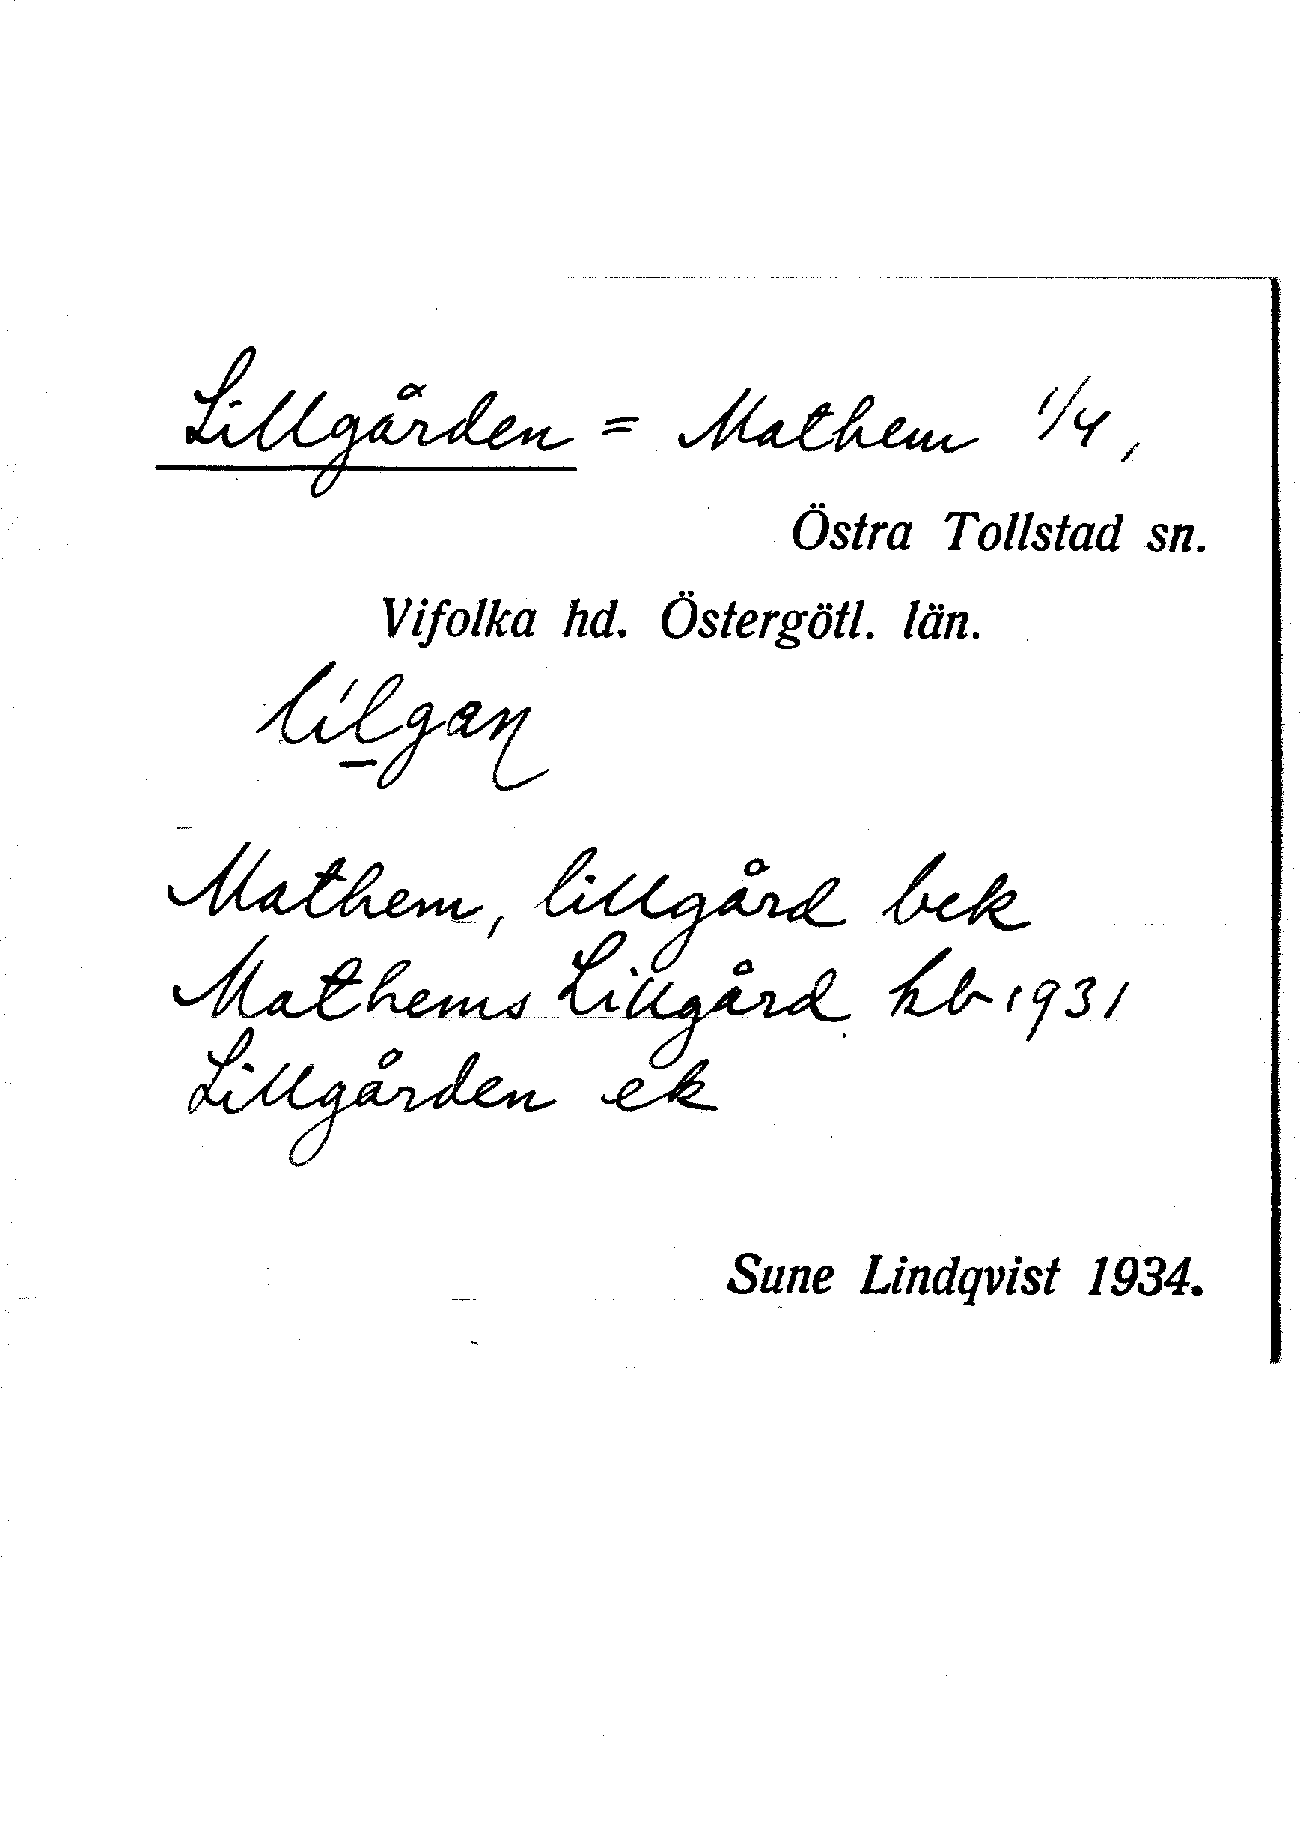 Lillgården = Mathem 1/4,
Östra Tollstad sn.
Vifolka hd. Östergötl. län.
Mathem, lillgård bek
Mathems Lillgård kb 1931
Lillgården ek
Sune Lindqvist 1934.